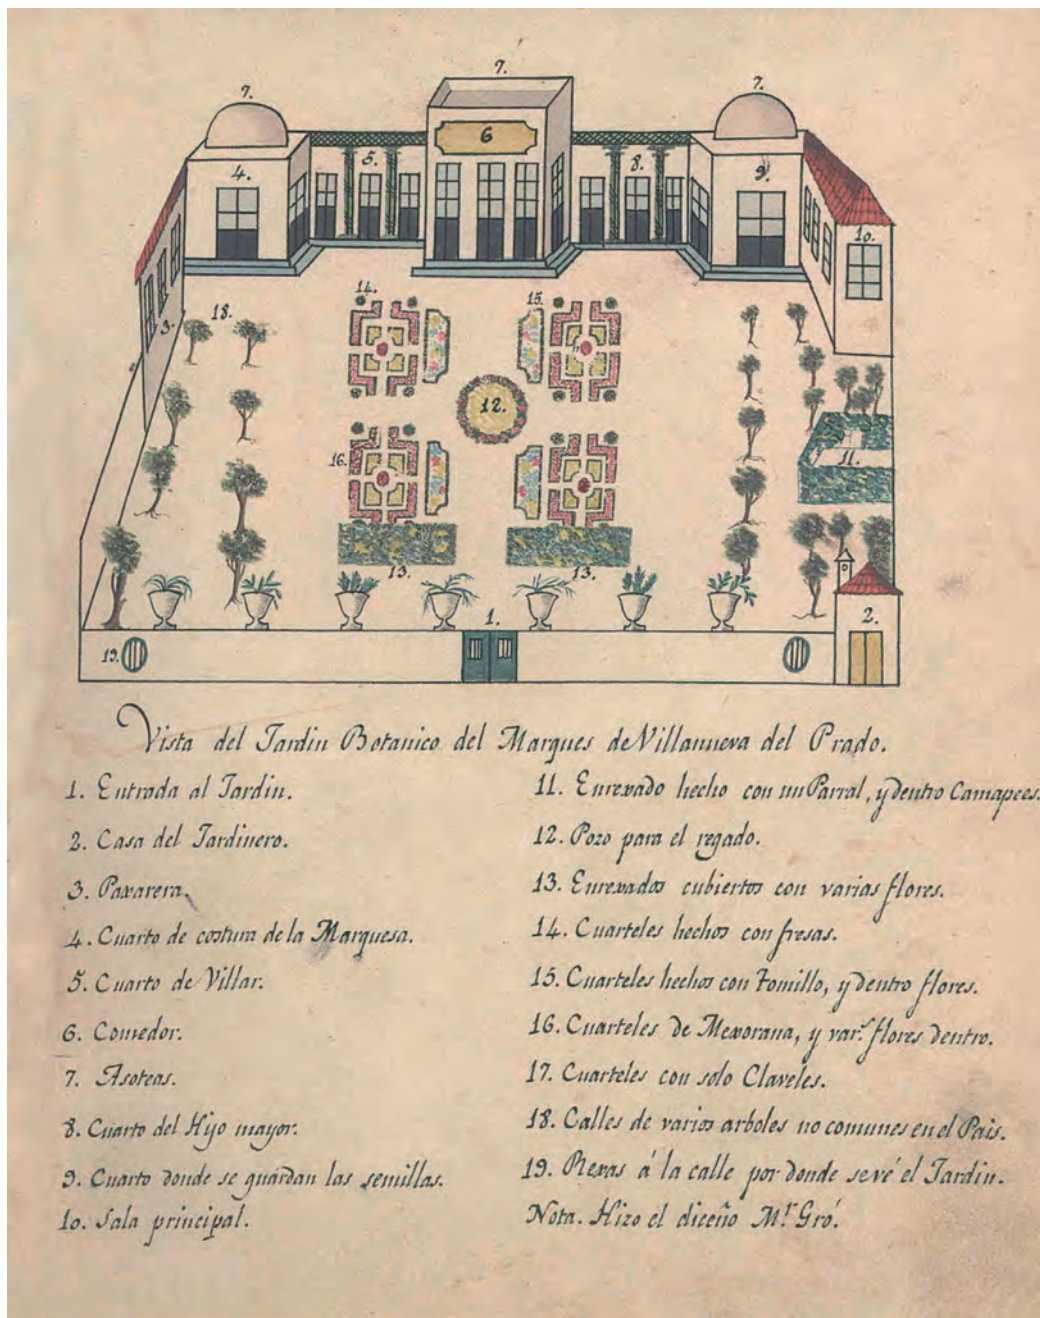 7.
7.
7.
6
4.
5.
8.
9.
10.
14.
15.
3.
18.
12.
16.
11.
13.
13.
1.
2.
19.
Vista del Jardin Botanico del Marques de Villanueva del Prado.
1. Entrada al Jardin.
2. Casa del Jardinero.
3. Paxarera.
4. Cuarto de costura de la Marquesa.
5. Cuarto de Villar.
6. Comedor.
7. Asoteas.
8. Cuarto del Hijo mayor.
9. Cuarto donde se guardan las semillas.
10. Sala principal.
11. Enrexado hecho con un Parral, y dentro Camapees.
12. Pozo para el regado.
13. Enrexados cubiertos con varias flores.
14. Cuarteles hechos con fresas.
15. Cuarteles hechos con Tomillo, y dentro flores.
16. Cuarteles de Mexorana, y var.s flores dentro.
17. Cuarteles con solo Claveles.
18. Calles de varios arboles no comunes en el Pais.
19. Rexas á la calle por donde se vé el Jardin.
Nota. Hizo el diceño M.r Gró.